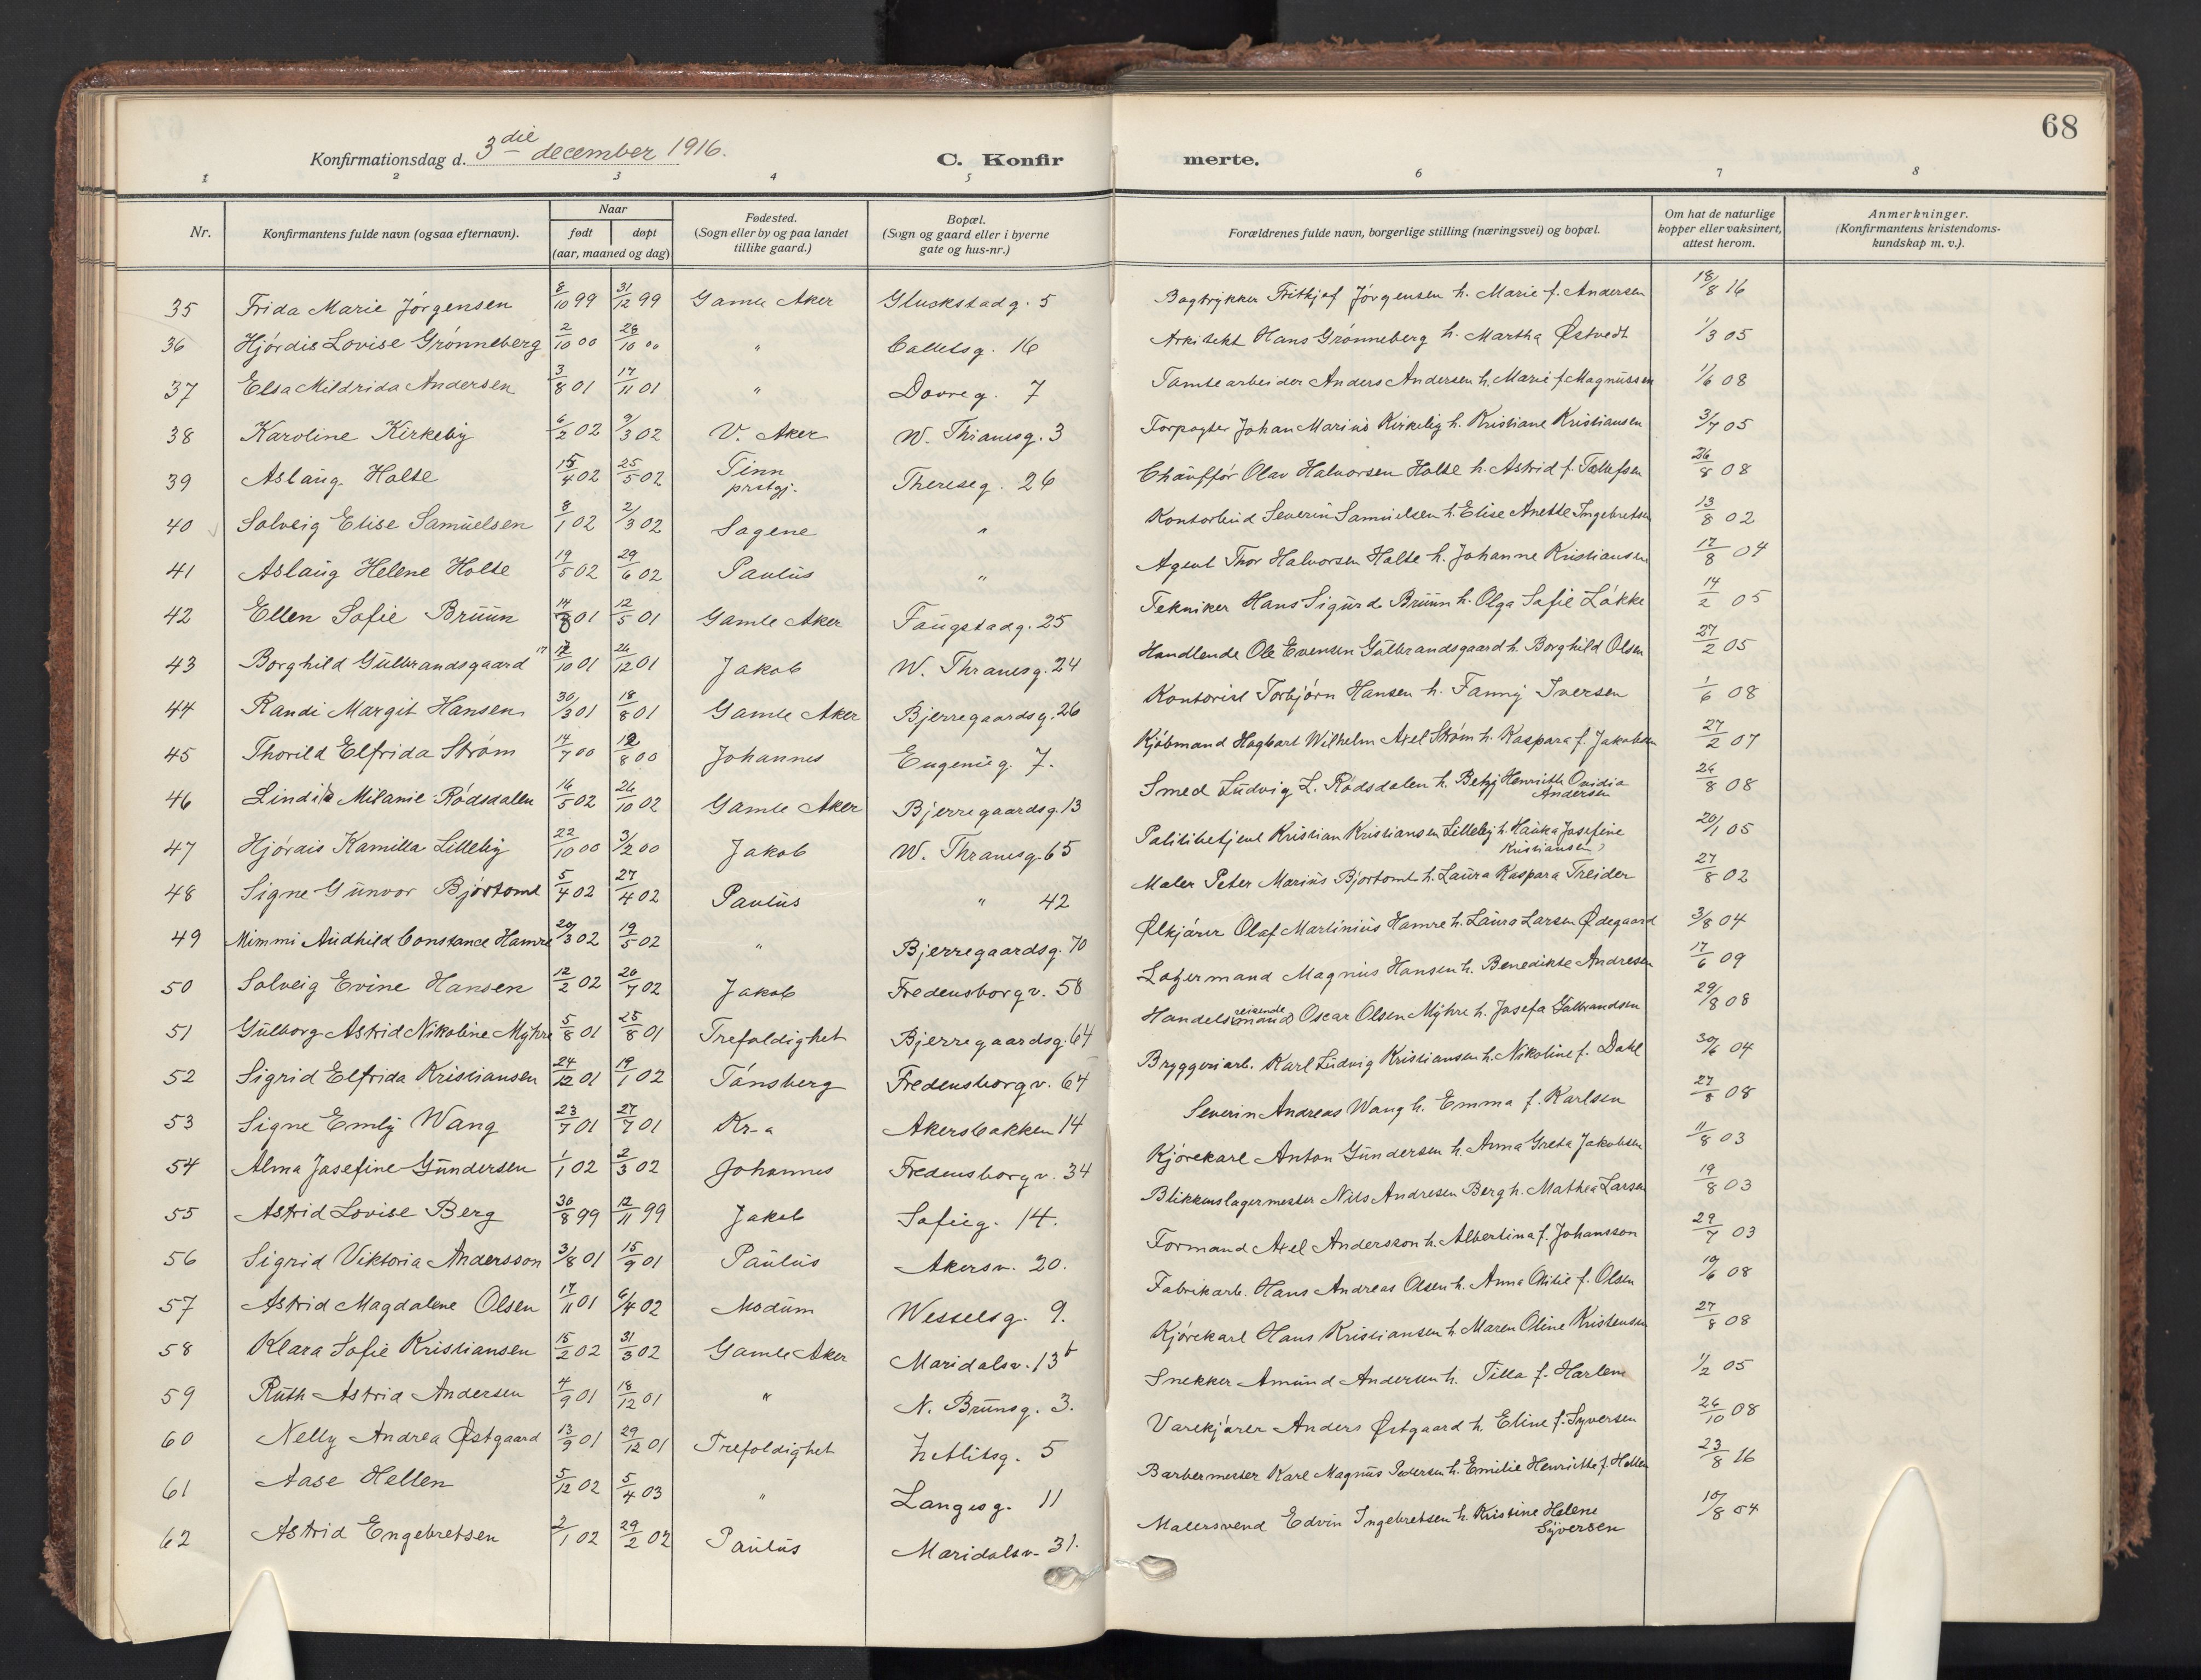 68
Konfirmationsdag d. 3die december 1916.
C. Konfirmerte.
1 2 3 4 5 6 7 8
Nr.
Konfirmantens fulde navn (ogsaa efternavn).
Naar
født døpt
(aar, maaned og dag)
Fødested.
(Sogn eller by og paa landet
tillike gaard.)
Bopæl.
(Sogn og gaard eller i byerne
gate og hus-nr.)
Forældrenes fulde navn, borgerlige stilling (næringsvei) og bopæl.
Om hat de naturlige
kopper eller vaksinert,
attest herom.
Anmerkninger.
(Konfirmantens kristendoms-
kundskap m. v.).
35 Frida Marie Jørgensen 8/10 99 31/12 99 Gamle Aker Gluckstadg. 5 Bogtrykker Frithjof Jørgensen h. Marie f. Andersen 18/8 16
36 Hjórdis Lovise Grónneberg 2/10 00 28/10 00 " Colletsg. 16 Arkitekt Hans Grónneberg h. Martha Østvedt 1/3 05
37 Elsa Mildrida Andersen 3/8 01 17/11 01 " Dovreg. 7 Tomtearbeider Anders Andersen h. Marie f Magnussen 1/6 08
38 Karoline Kirkeby 6/2 02 9/3 02 V. Aker W. Thranesg. 3 Forpagter Johan Marius Kirkeby h. Kristiane Kristiansen 3/7 05
39 Aslaug Holte 15/4 02 25/5 02 Tinn prstgj. Thereseg. 26 Chaufför Olav Halvorsen Holte h. Astrid f. Tollefsen 26/8 08
40 Solveig Elise Samuelsen 8/1 02 2/3 02 Sagene " Kontorbud Severin Samuelsen h. Elise Anette Ingebretsen 13/8 02
41 Aslaug Helene Holte 19/5 02 29/6 02 Paulus " Agent Thor Halvorsen Holte h. Johanne Kristiansen 17/8 04
42 Ellen Sofie Bruun 14/3 01 12/5 01 Gamle Aker Fougstadg. 25 Tekniker Hans Sigurd Bruun h. Olga Sofie Lókke 14/2 05
43 Borghild Gulbrandsgaard 17/10 01 26/12 01 Jakob W. Thranesg. 24 Handlende Ole Evensen Gulbrandsgaard h. Borghild Olsen 27/2 05
44 Randi Margit Hansen 30/3 01 18/8 01 Gamle Aker Bjerregaardsg. 26 Kontorist Torbjórn Hansen h. Fanny Iversen 1/6 08
45 Thorild Elfrida Strøm 14/7 00 12/8 00 Johannes Eugenieg. 7. Kjóbmand Hagbart Wilhelm Axel Strøm h. Kaspara f. Jakobsen 27/2 07
46 Milanie Ródsdalen 16/5 02 26/10 02 Gamle Aker Bjerregaardsg. 13 Smed Ludvig L. Ródsdalen h. Betzy Henriette Ovidia Andersen 26/8 08
47 Hjórdis Kamilla Lilleby 22/10 00 3/2 00 Jakob W. Thranesg. 65 Politibetjent Kristian Kristiansen Lilleby h. Hauka Josefine Kristiansen 20/1 05
48 Signe Gunvor Bjórtomt 5/4 02 27/4 02 Paulus " 42 Maler Peter Marius Bjortomt h. Laura Kaspara Treider 27/8 02
49 Mimmi Audhild Constance Hamre 20/3 02 19/5 02 " Bjerregaardsg. 70 Ølkjórer Olaf Martinius Hamre h. Laura Larsen Ødegaard 3/8 04
50 Solveig Evine Hansen 12/2 02 20/7 02 Jakob Fredensborgv. 58 Lagermand Magnus Hansen h. Benedikte Andresen 17/6 09
51 Gulborg Astrid Nikoline Myhre 5/8 01 25/8 01 Trefoldighet Bjerregaardsg. 64 Handelsreisende Oscar Olsen Myhre h. Josefa Gulbrandsen 29/8 08
52 Sigrid Elfrida Kristiansen 24/12 01 19/1 02 Tónsberg Fredensborgv. 64 Bryggeriarb. Karl Ludvig Kristiansen h. Nikoline f. Dahl 30/6 04
53 Signe Emly Wang 23/7 01 27/7 01 Kr-a Akersbakken 14 Severin Andreas Wang h. Emma f. Karlsen 27/8 08
54 Alma Josefine Gundersen 1/1 02 2/3 02 Johannes Fredensborgv. 34 Kjórekarl Anton Gundersen h. Anna Greta Jakobsen 11/8 03
55 Astrid Lovise Berg 30/8 99 12/11 99 Jakob Sofieg. 14. Blikkenslagermester Nils Andresen Berg h. Mathea Larsen 19/8 03
56 Sigrid Viktoria Andersson 3/8 01 15/9 01 Paulus Akersv. 20. Formand Axel Andersson h. Albertina f. Johansson 29/7 03
57 Astrid Magdalene Olsen 17/11 01 6/4 02 Modum Wesselsg. 9. Fabrikarb. Hans Andreas Olsen h. Anna Otilie f. Olsen 19/6 08
58 Klara Sofie Kristiansen 15/2 02 31/3 02 Gamle Aker Maridalsv. 13b Kjórekarl Hans Kristiansen h. Maren Oline Kristensen 27/8 08
59 Ruth Astrid Andersen 4/9 01 18/12 01 " N. Brunsg. 3. Snekker Amund Andersen h. Tilla f. Harlem 1/2 05
60 Nelly Andrea Østgaard 13/9 01 29/12 01 Trefoldighet Zetlitsg. 5 Varekjórer Anders Østgaard h. Eline f. Syversen 26/10 08
61 Aase Hellen 5/12 02 5/4 03 " Langesg. 11 Barbermester Karl Magnus Pedersen h. Emilie Henriette f. Hellen 23/8 16
62 Astrid Engebretsen 2/1 02 29/2 02 Paulus Maridalsv. 31. Malersvend Edvin Ingebretsen h. Kristine Helene Syversen 10/8 04